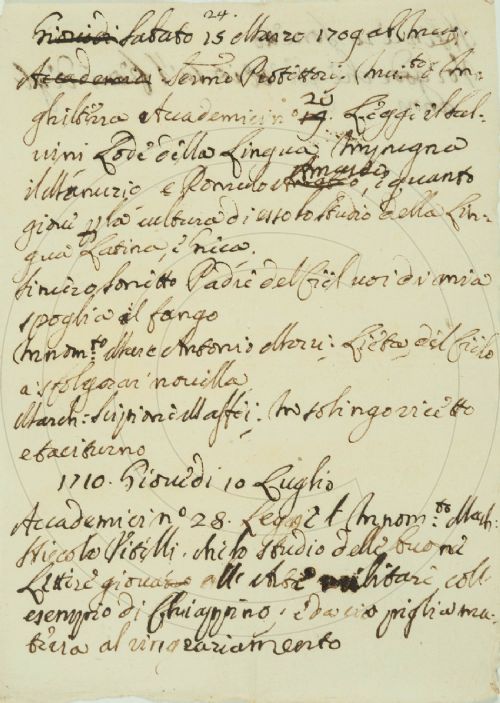 24.
Giovedi Sabato 15 Marzo 1709 all'
Accademia. Sermo Protettori.
ghilterra Accademici n° 20 19. Leggi il Sal-
vini Lode della Lingua, Impugna
il Manuzio e Romolo Amaseo, e quanto
giovi p la cultura di esso lo studio della Lin-
gua Latina, e Greca.
sincero sonetto Padre del Ciel voi di mia
spoglia il fango
Innom:to Marc Antonio Mozzi: Lieta, del Cielo
a: sfolgorar novella
March: Scipioni Maffei: In solingo ricetto
e taciturno
1710. Giovedi 10 Luglio
Accademici n° 28. Legge l' Innom:to March:
Niccolo Vitelli. che lo studio delle buone
Lettere giova alle Arti militari coll
esempio di Chiappino, e da cio piglia ma-
teria al ringraziamento